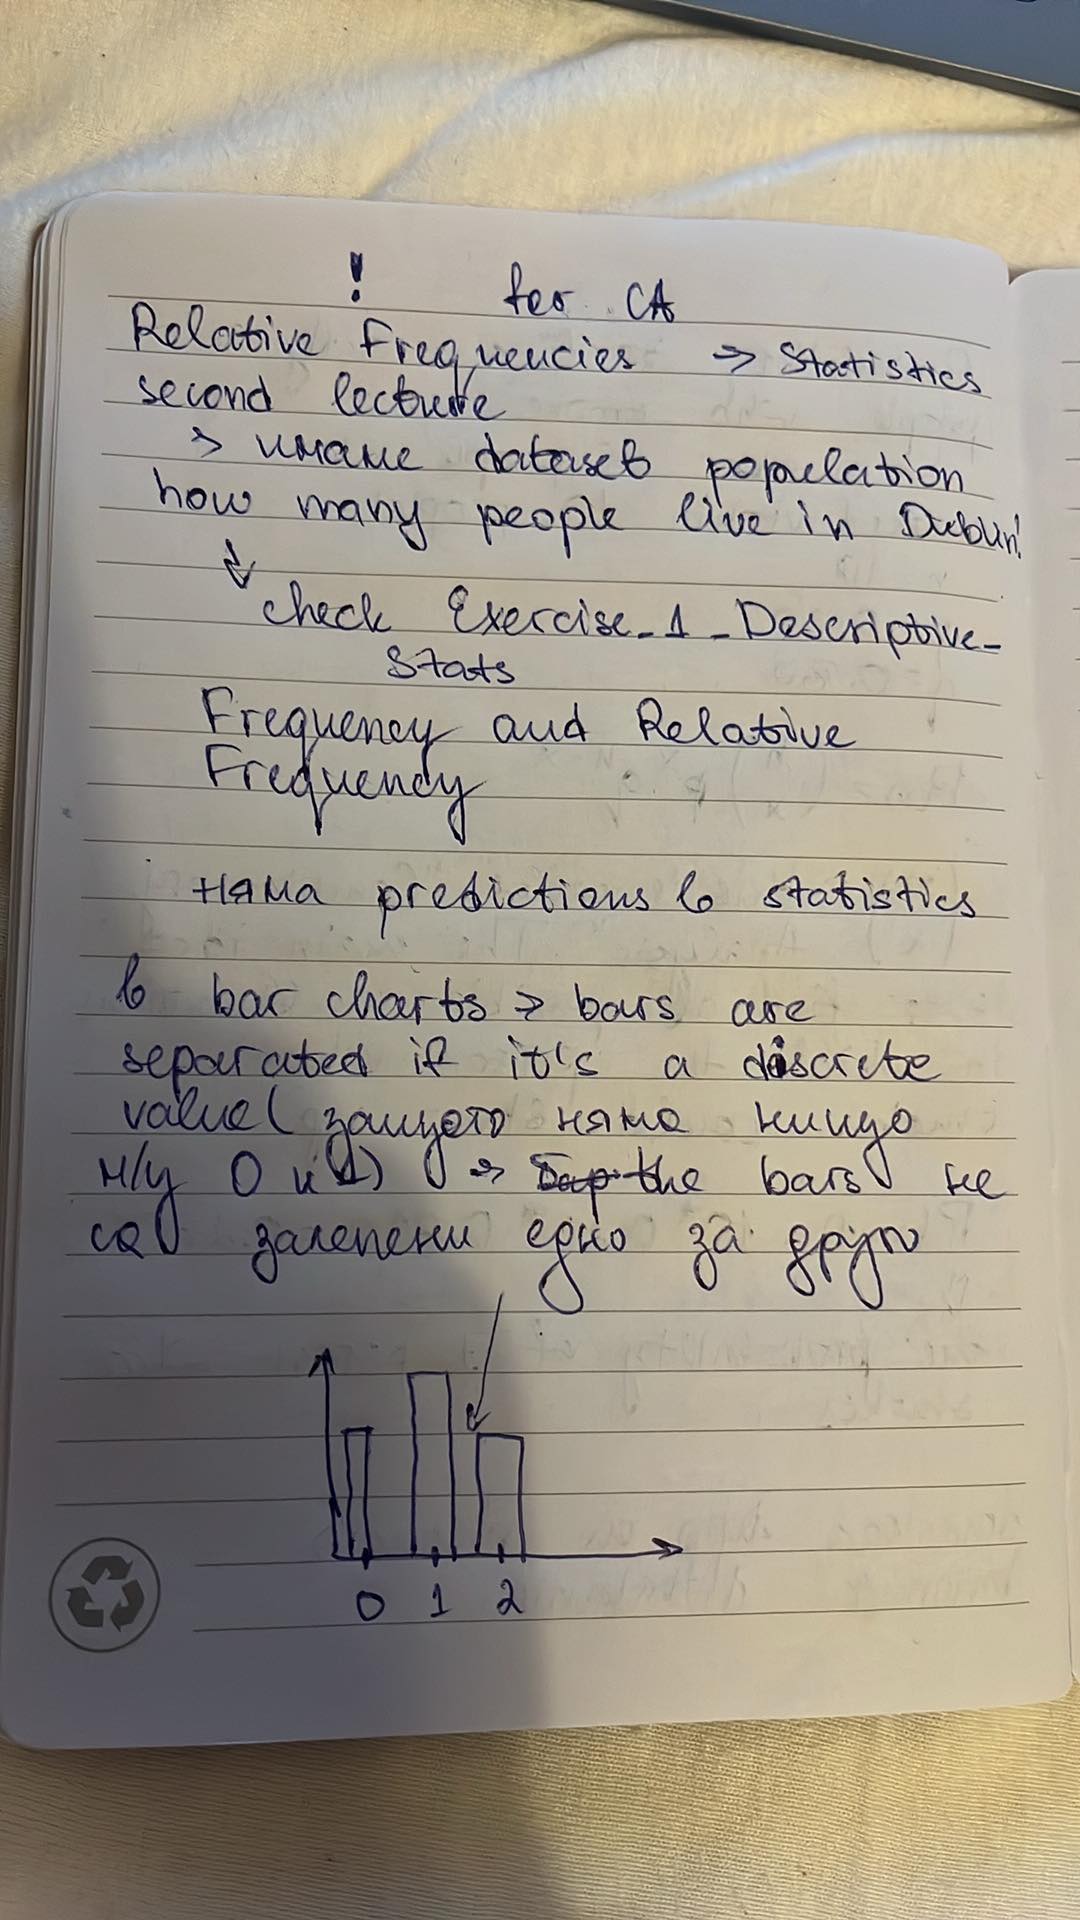 ! for CA
Relative Frequencies → Statistics
second lecture
> имаме dataset population
how many people live in Dublin!
↓
check Exercise_1_Descriptive_
Stats
Frequency and Relative
Frequency
няма predictions в statistics
в bar charts → bars are
separated if it's a discrete
value (защото няма нищо
м/у 0 и 1) → the bars не
са залепени едно за друго
0 1 2